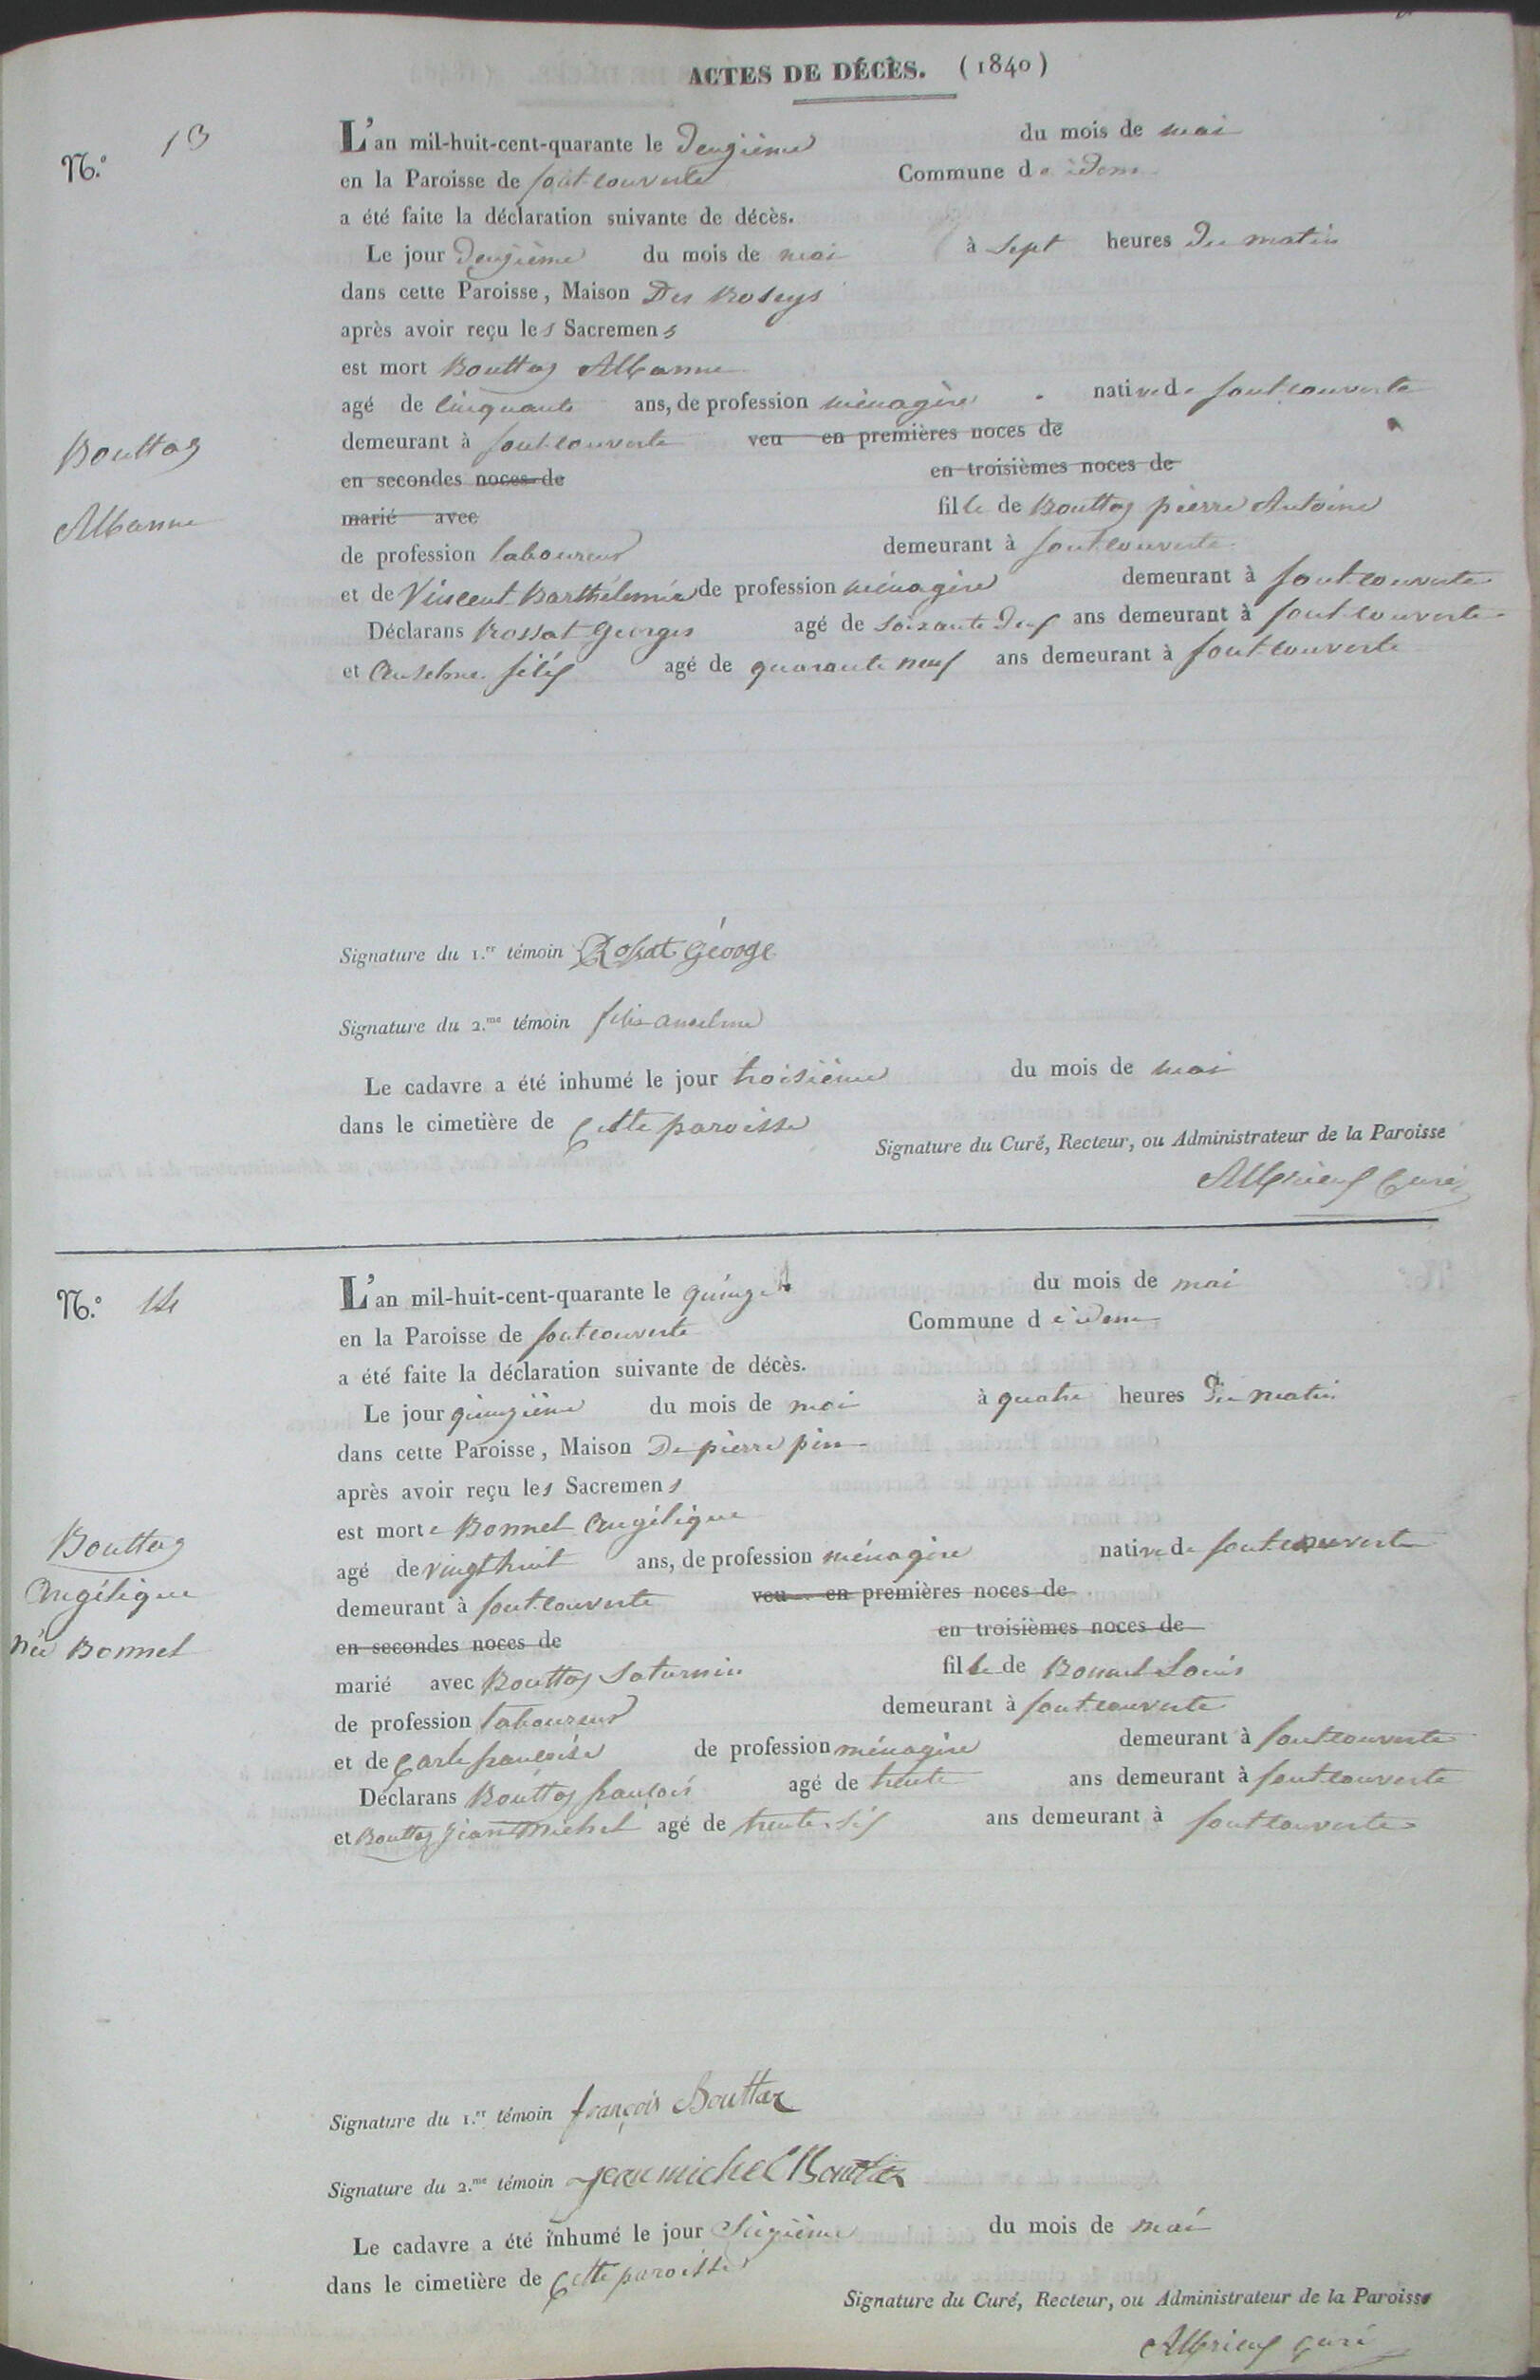 ACTES DE DÉCÈS. (1840)
N.º 13
L'an mil-huit-cent-quarante le deuzième du mois de mai
en la Paroisse de fontcouverte Commune de idem
a été faite la déclaration suivante de décès.
Le jour deuzième du mois de mai à sept heures du matin
dans cette Paroisse, Maison Des
après avoir reçu les Sacremens
est mort Bouttaz Albanne
agé de cinquante ans, de profession ménagère native de fontcouverte
Bouttaz
demeurant à fontcouverte veu en premières noces de
en secondes noces de en troisièmes noces de
Albanne
marié avec fille de Bouttaz pierre Antoine
de profession laboureur demeurant à fontcouverte
et de Vincent Barthélemie de profession ménagère demeurant à fontcouverte
Déclarans Rossat Georges agé de soixante deux ans demeurant à fontcouverte
et Anselme félix agé de quarante neuf ans demeurant à fontcouverte
Signature du 1.er témoin Rossat George
Signature du 2.me témoin félix anselme
Le cadavre a été inhumé le jour troisième du mois de mai
dans le cimetière de cette paroisse
Signature du Curé, Recteur, ou Administrateur de la Paroisse
Albrieux Curé
N.º 14
L'an mil-huit-cent-quarante le quinze du mois de mai
en la Paroisse de fontcouverte Commune de idem
a été faite la déclaration suivante de décès.
Le jour quinzième du mois de mai à quatre heures du matin
dans cette Paroisse, Maison De pierre pin
après avoir reçu les Sacremens
est morte Bonnet Angélique
Bouttaz
agé de vingt huit ans, de profession ménagère native de fontcouverte
Angélique
demeurant à fontcouverte veu en premières noces de
née Bonnet
en secondes noces de en troisièmes noces de
marié avec Bouttaz Saturnin fille de Bonnet Louis
de profession laboureur demeurant à fontcouverte
et de Carle françoise de profession ménagère demeurant à fontcouverte
Déclarans Bouttaz françois agé de trente ans demeurant à fontcouverte
et Bouttaz Jean Michel agé de trente six ans demeurant à fontcouverte
Signature du 1.er témoin françois Bouttaz
Signature du 2.me témoin jean michel Bouttaz
Le cadavre a été inhumé le jour Sizième du mois de mai
dans le cimetière de cette paroisse
Signature du Curé, Recteur, ou Administrateur de la Paroisse
Albrieux curé